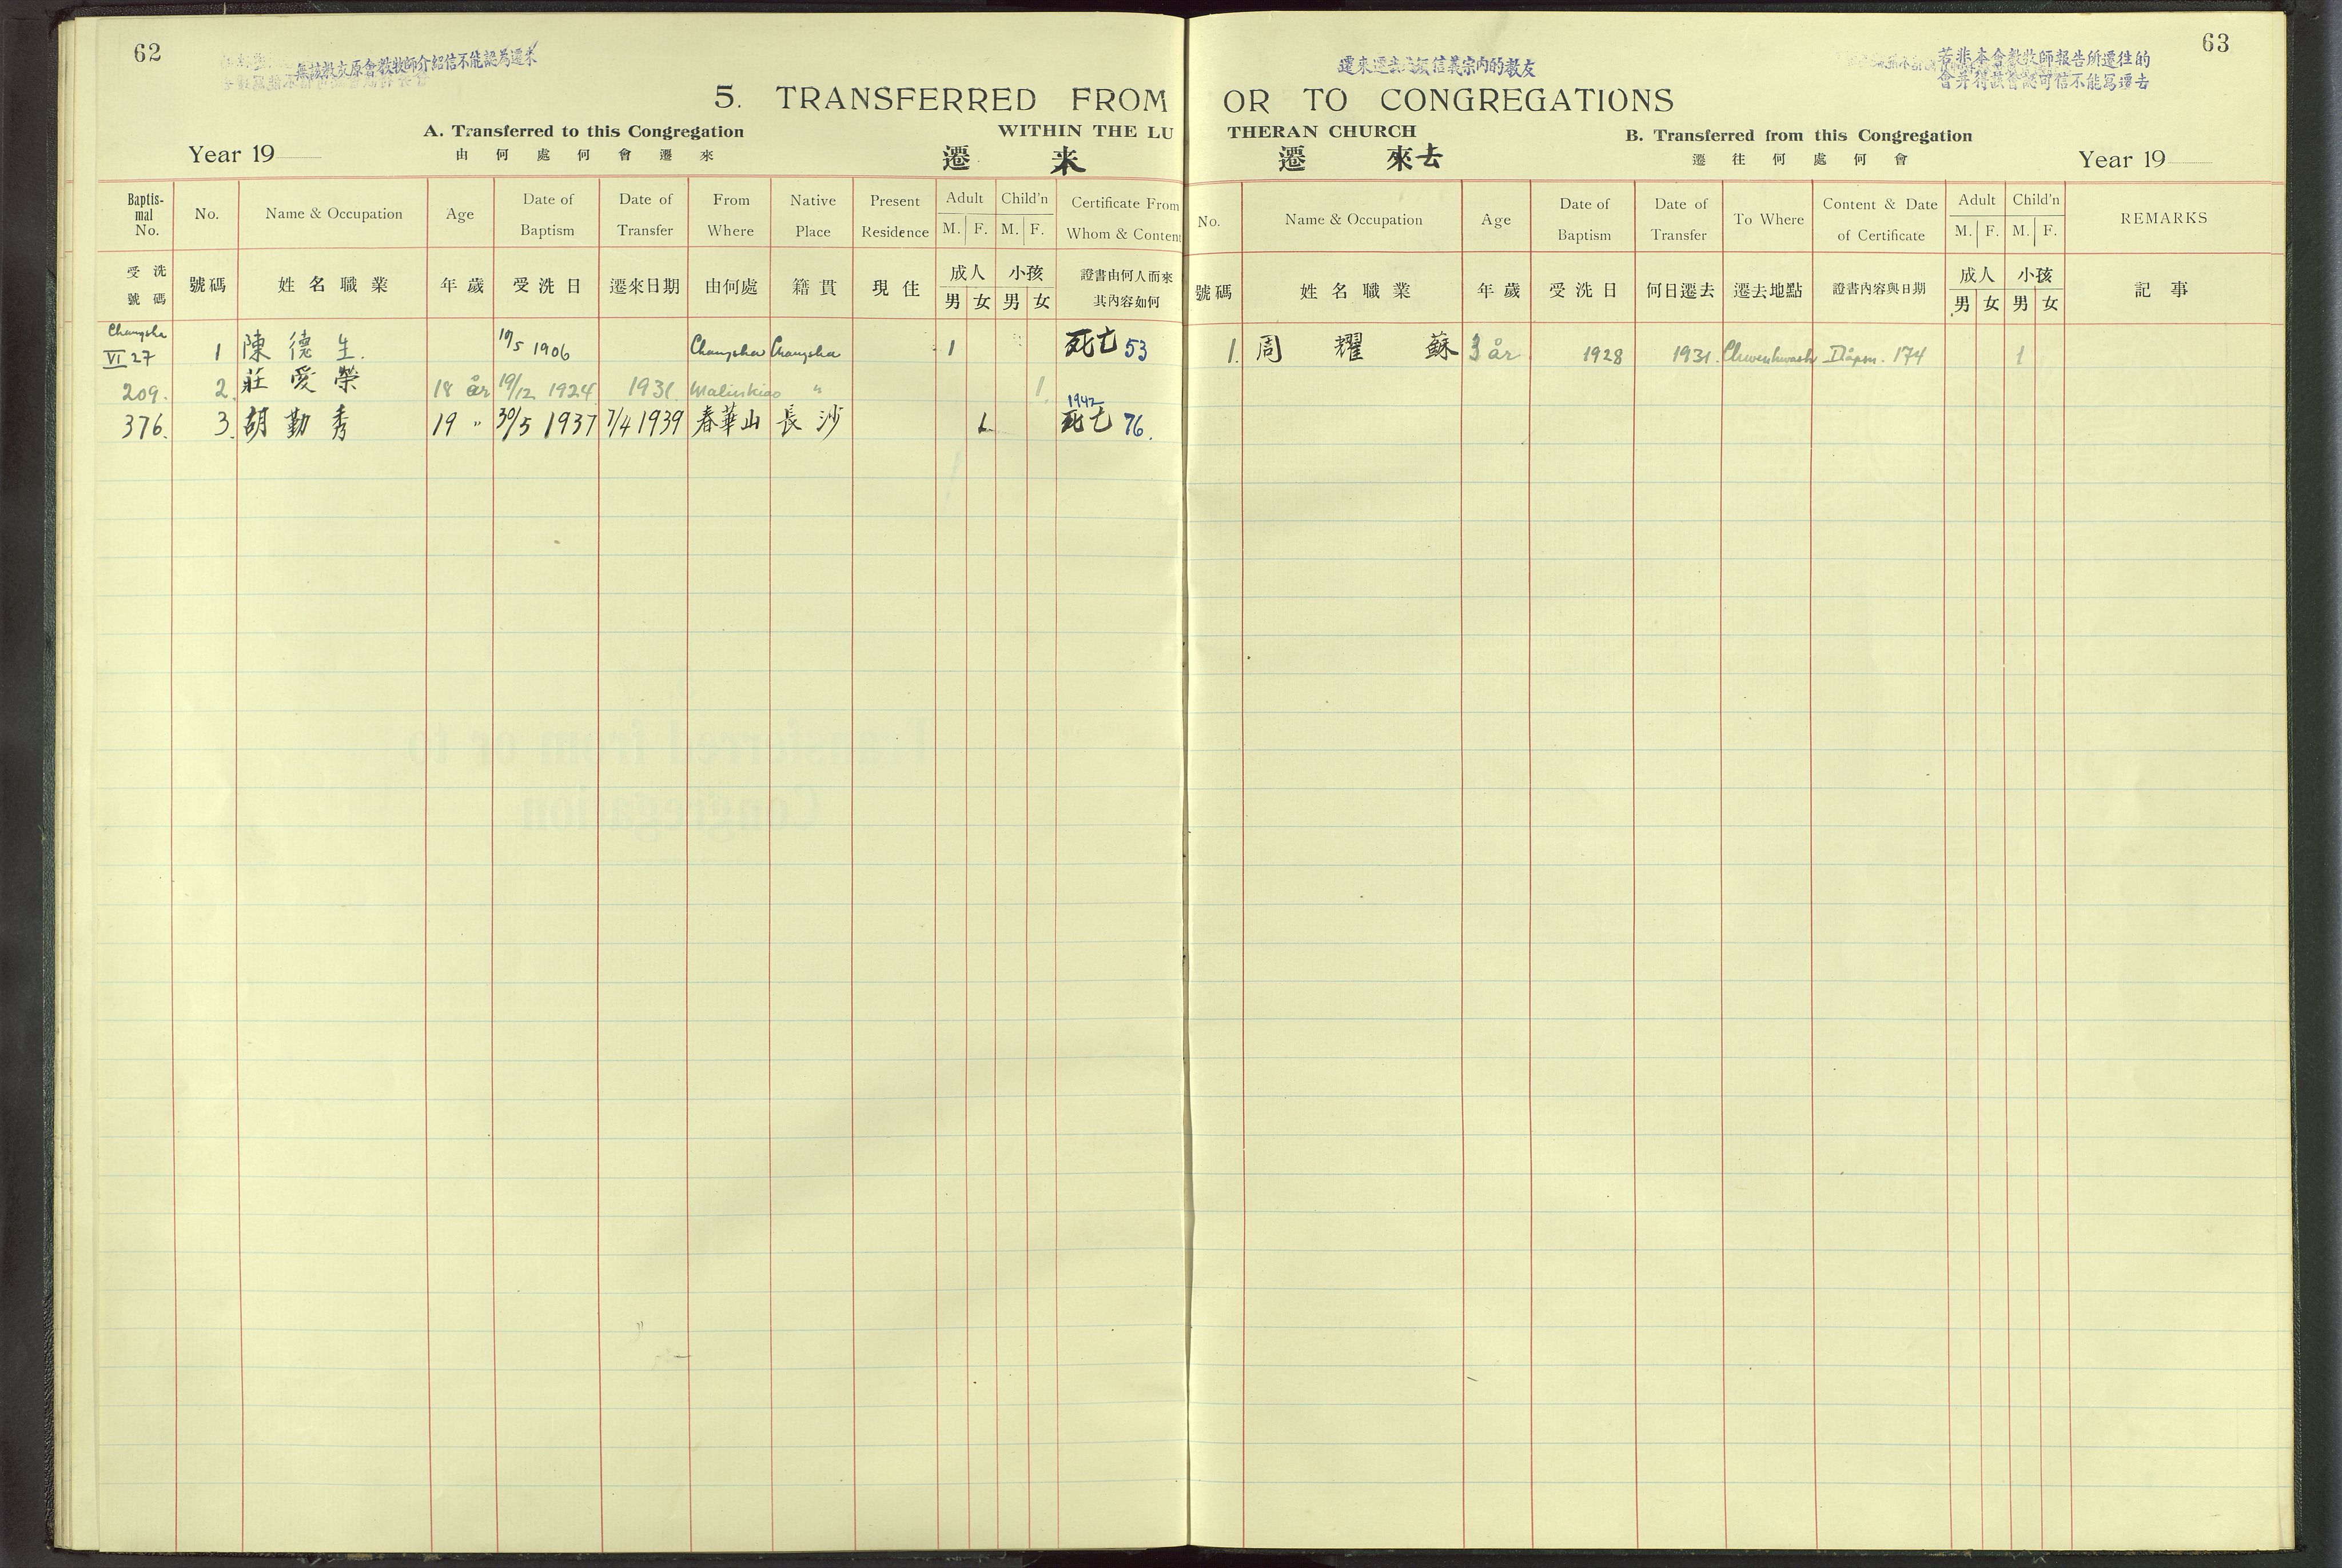 62
無該教友原會教牧師介紹信不能認為遷來
5. TRANSFERRED FROM
A. Transferred to this Congregation
WITHIN THE LU
Year 19
由何處何會遷來
遷 来
Baptis-mal No. No. Name & Occupation Age Date of Baptism Date of Transfer From Where Native Place Present Residence Adult M. F. Child'n M. F. Certificate From Whom & Content
受洗號碼 號碼 姓名職業 年歲 受洗日 遷來日期 由何處 籍貫 現住 成人 男 女 小孩 男 女 證書由何人而來其內容如何
Changsha
VI 27 1 陳德生. 17/5 1906 Changsha Changsha 1 死亡 53
209. 2. 莊愛榮 18 år 19/12 1924 1931. Malinkiao " 1.
1942
376. 3. 胡勤秀 19 " 30/5 1937 7/4 1939 春華山 長沙 1 死亡 76.
63
遷來遷去 信義宗内的教友
若非本會教牧師報告所遷往的
會并得該會認可信不能寫遷去
OR TO CONGREGATIONS
THERAN CHURCH
B. Transferred from this Congregation
遷 來去
遷往何處何會
Year 19
No. Name & Occupation Age Date of Baptism Date of Transfer To Where Content & Date of Certificate Adult M. F. Child'n M. F. REMARKS
號碼 姓名職業 年歲 受洗日 何日遷去 遷去地點 證書內容與日期 成人 男 女 小孩 男 女 記事
1. 周耀蘇 3 år 1928 1931. Dåpsn. 174 1